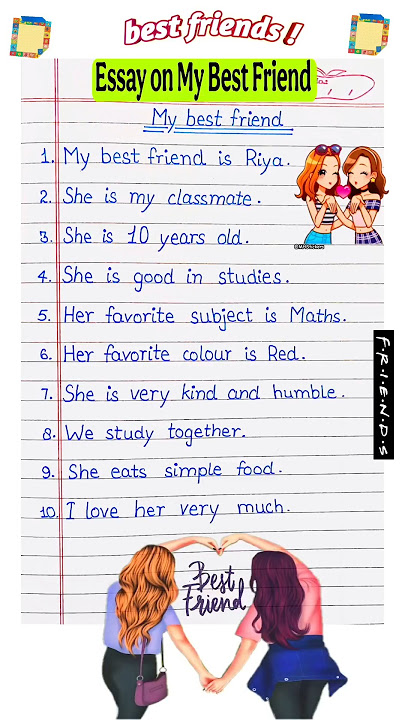 best friends!
Essay on My Best Friend
My best friend
1. My best friend is Riya.
2. She is my classmate.
3. She is 10 years old.
4. She is good in studies.
5. Her favorite subject is Maths.
6. Her favorite colour is Red.
7. She is very kind and humble.
8. We study together.
9. She eats simple food.
10. I love her very much.
F·R·I·E·N·D·S
Best
Friend